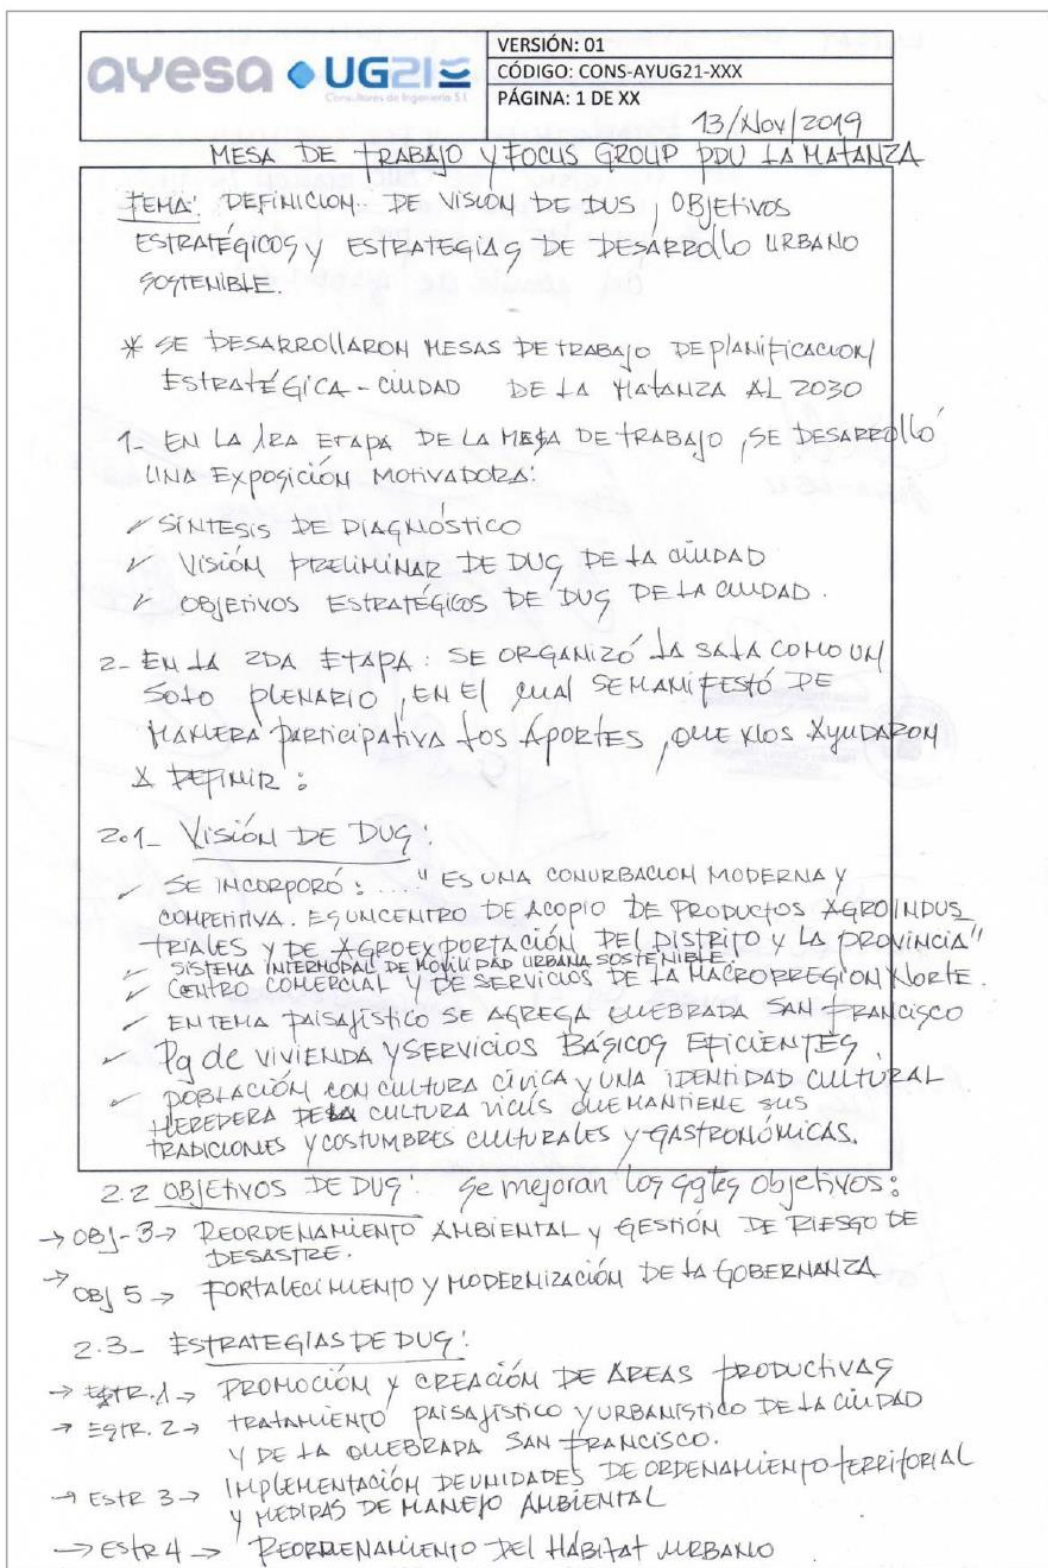 ayesa UG21
Consultores de Ingeniería S.L
VERSIÓN: 01
CÓDIGO: CONS-AYUG21-XXX
PÁGINA: 1 DE XX
13/Nov/2019
MESA DE TRABAJO Y FOCUS GROUP PDU LA MATANZA
TEMA: DEFINICION DE VISION DE DUS, OBJETIVOS
ESTRATÉGICOS Y ESTRATEGIAS DE DESARROLLO URBANO
SOSTENIBLE.
* SE DESARROLLARON MESAS DE TRABAJO DE PLANIFICACION
ESTRATÉGICA - CIUDAD DE LA MATANZA AL 2030
1- EN LA 1RA ETAPA DE LA MESA DE TRABAJO, SE DESARROLLÓ
UNA EXPOSICIÓN MOTIVADORA:
✓ SÍNTESIS DE DIAGNÓSTICO
✓ VISIÓN PRELIMINAR DE DUS DE LA CIUDAD
✓ OBJETIVOS ESTRATÉGICOS DE DUS DE LA CIUDAD.
2- EN LA 2DA ETAPA: SE ORGANIZÓ LA SALA COMO UN
SOLO PLENARIO, EN EL CUAL SE MANIFESTÓ DE
MANERA PARTICIPATIVA LOS APORTES, QUE NOS AYUDARON
A DEFINIR:
2.1- VISIÓN DE DUS:
✓ SE INCORPORÓ: ... "ES UNA CONURBACION MODERNA Y
COMPETITIVA. ES UN CENTRO DE ACOPIO DE PRODUCTOS AGROINDUS
TRIALES Y DE AGROEXPORTACIÓN DEL DISTRITO Y LA PROVINCIA"
✓ SISTEMA INTERMODAL DE MOVILIDAD URBANA SOSTENIBLE.
✓ CENTRO COMERCIAL Y DE SERVICIOS DE LA MACRORREGION NORTE.
✓ EN TEMA PAISAJÍSTICO SE AGREGA QUEBRADA SAN FRANCISCO
✓ Pg de VIVIENDA Y SERVICIOS BÁSICOS EFICIENTES
✓ POBLACIÓN CON CULTURA CÍVICA Y UNA IDENTIDAD CULTURAL
HEREDERA DE LA CULTURA VICÚS QUE MANTIENE SUS
TRADICIONES Y COSTUMBRES CULTURALES Y GASTRONÓMICAS.
2.2 OBJETIVOS DE DUS: Se mejoran los sgtes objetivos:
→ OBJ-3→ REORDENAMIENTO AMBIENTAL y GESTIÓN DE RIESGO DE
DESASTRE.
→ OBJ 5 → FORTALECIMIENTO Y MODERNIZACIÓN DE LA GOBERNANZA
2.3- ESTRATEGIAS DE DUS:
→ ESTR.1→ PROMOCIÓN Y CREACIÓN DE AREAS PRODUCTIVAS
→ ESTR. 2→ TRATAMIENTO PAISAJÍSTICO Y URBANISTICO DE LA CIUDAD
Y DE LA QUEBRADA SAN FRANCISCO.
→ ESTR 3→ IMPLEMENTACIÓN DE UNIDADES DE ORDENAMIENTO TERRITORIAL
Y MEDIDAS DE MANEJO AMBIENTAL
→ ESTR 4 → REORDENAMIENTO DEL HÁBITAT URBANO